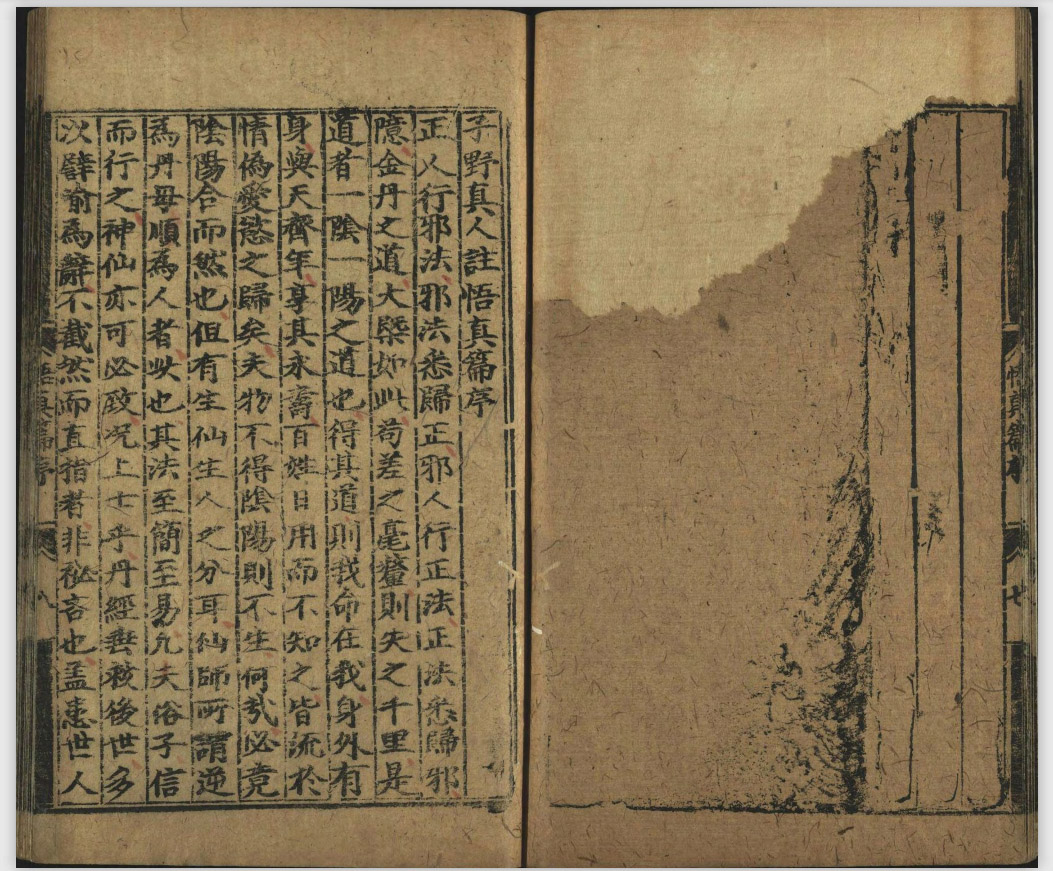 悟真篇序
七
子野真人註悟真篇序
正人行邪法邪法悉歸正邪人行正法正法悉歸邪
噫金丹之道大槩如此苟差之毫釐則失之千里是
道者一陰一陽之道也得其道則我命在我身外有
身與天齊年享其永壽百姓日用而不知之皆流於
情僞愛慾之歸矣夫物不得陰陽則不生何哉必竟
陰陽合而然也但有生仙生人之分耳仙師所謂逆
爲丹母順爲人者此也其法至簡至易凡夫俗子信
而行之神仙亦可必致况上士乎丹經垂救後世多
次譬喻爲辭不截然而直指者非秘吝也盖恚世人
悟真篇序
八